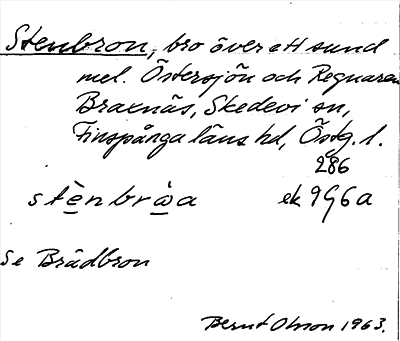 Stenbron, bro över ett sund
mel. Östersjön och Regnaren
Braxnäs, Skedevi sn,
Finspånga läns hd, Östg. l.
286
stè̱nbrὼ̱a ek 9G6a
Se Brädbron
Bernt Olsson 1963.